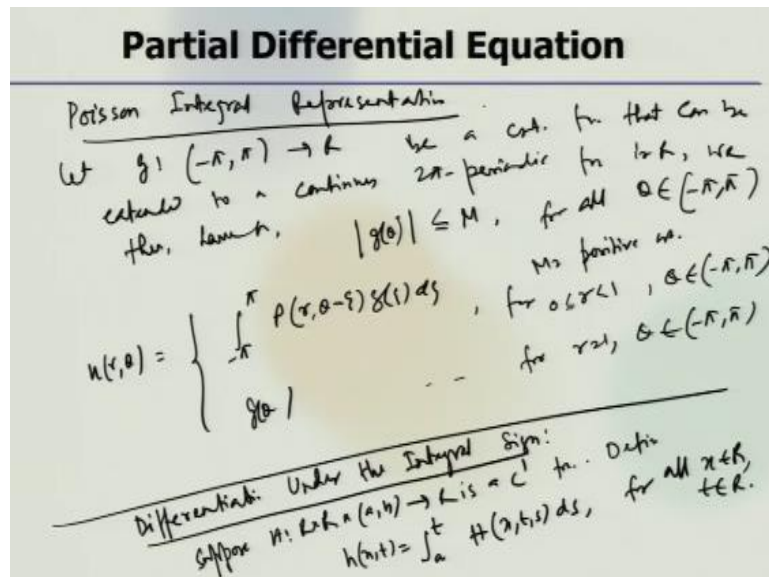 Partial Differential Equation
Poisson Integral Representation.
Let g: (-π, π) → R be a cont. fn. that can be
extended to a continuous 2π-periodic fn to R, we
then, have, |g(θ)| ≤ M, for all θ ∈ (-π, π)
M > positive
u(r,θ) = { ∫_{-π}^{π} P(r, θ-ξ) g(ξ) dξ, for 0 ≤ r < 1, θ ∈ (-π, π)
g(θ) .. for r=1, θ ∈ (-π, π)
Differentiati. Under the Integral Sign:
Suppose H: R×R×(a,b) → R is a C¹ fn. Defin
h(x,t) = ∫_a^t H(x,t,s) ds, for all x ∈ R,
t ∈ R.